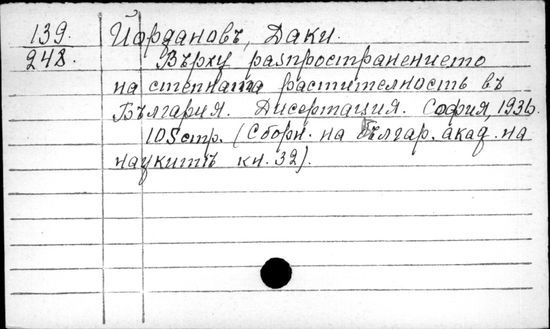 139. Йордановъ, Даки.
248. Върху разпространението
на степната растителность въ
България. Дисертация. София, 1936.
105 стр. (Сборн. на Българ. акад. на
наукитѣ кн. 32).